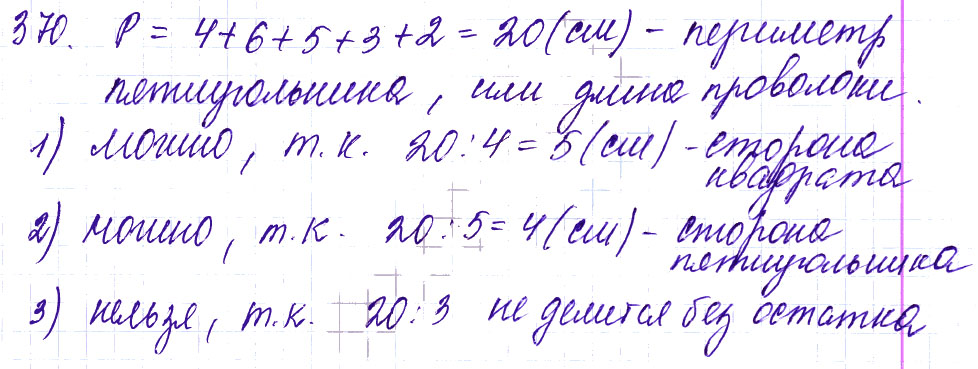 370. P = 4+6+5+3+2 = 20(см) – периметр
пятиугольника, или длина проволоки.
1) можно, т.к. 20:4=5(см) – сторона
квадрата
2) можно, т.к. 20:5=4(см) – сторона
пятиугольника
3) нельзя, т.к. 20:3 не делится без остатка